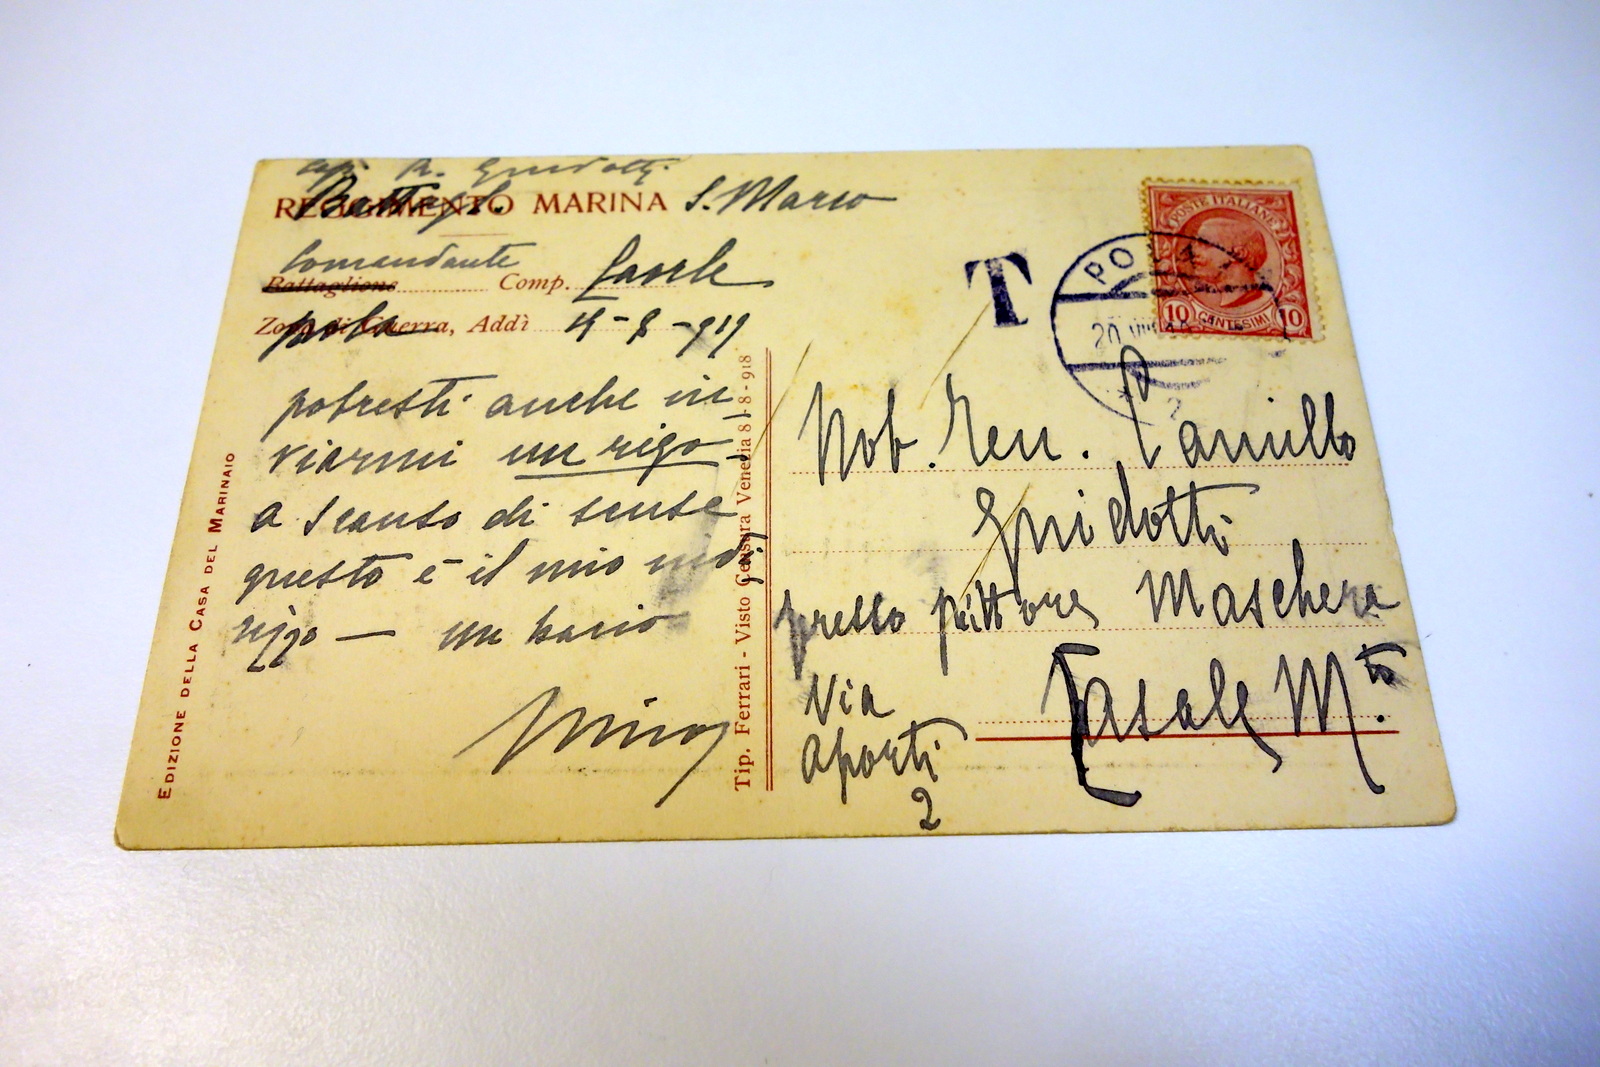 R. Guidotti
REGGIMENTO MARINA S. Marco
Comandante
Battaglione Comp.
Zona di Guerra, Addì
pola 19-8-919
potresti anche in
viarmi un rigo
a scanso di scuse
questo è il mio indi
rizzo — un bacio
Nino
EDIZIONE DELLA CASA DEL MARINAIO
Tip. Ferrari - Visto Censura Venezia 8-8-918
T
POLA
20 VIII
2
POSTE ITALIANE
10 CENTESIMI 10
Nob. Ten. Camillo
Guidotti
presso pittore Maschera
Casale M.to
Via
Aporti
2